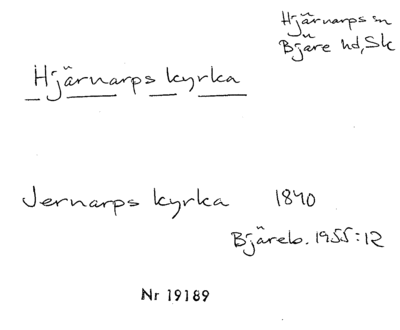 Hjärnarps sn
Bjäre hd, Sk
Hjärnarps kyrka
Jernarps kyrka 1840
Bjäreb. 1955:12
Nr 19189